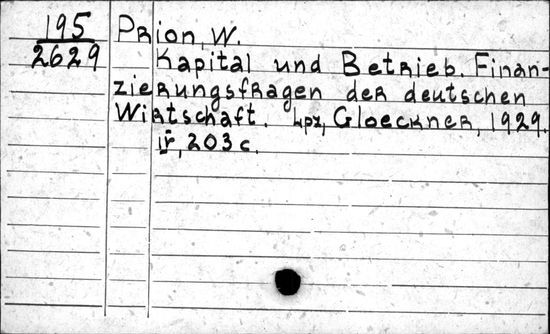 195
2629
Prion, W.
Kapital und Betrieb. Finan-
zierungsfragen der deutschen
Wirtschaft. Lpz, Gloeckner, 1929.
203 c.